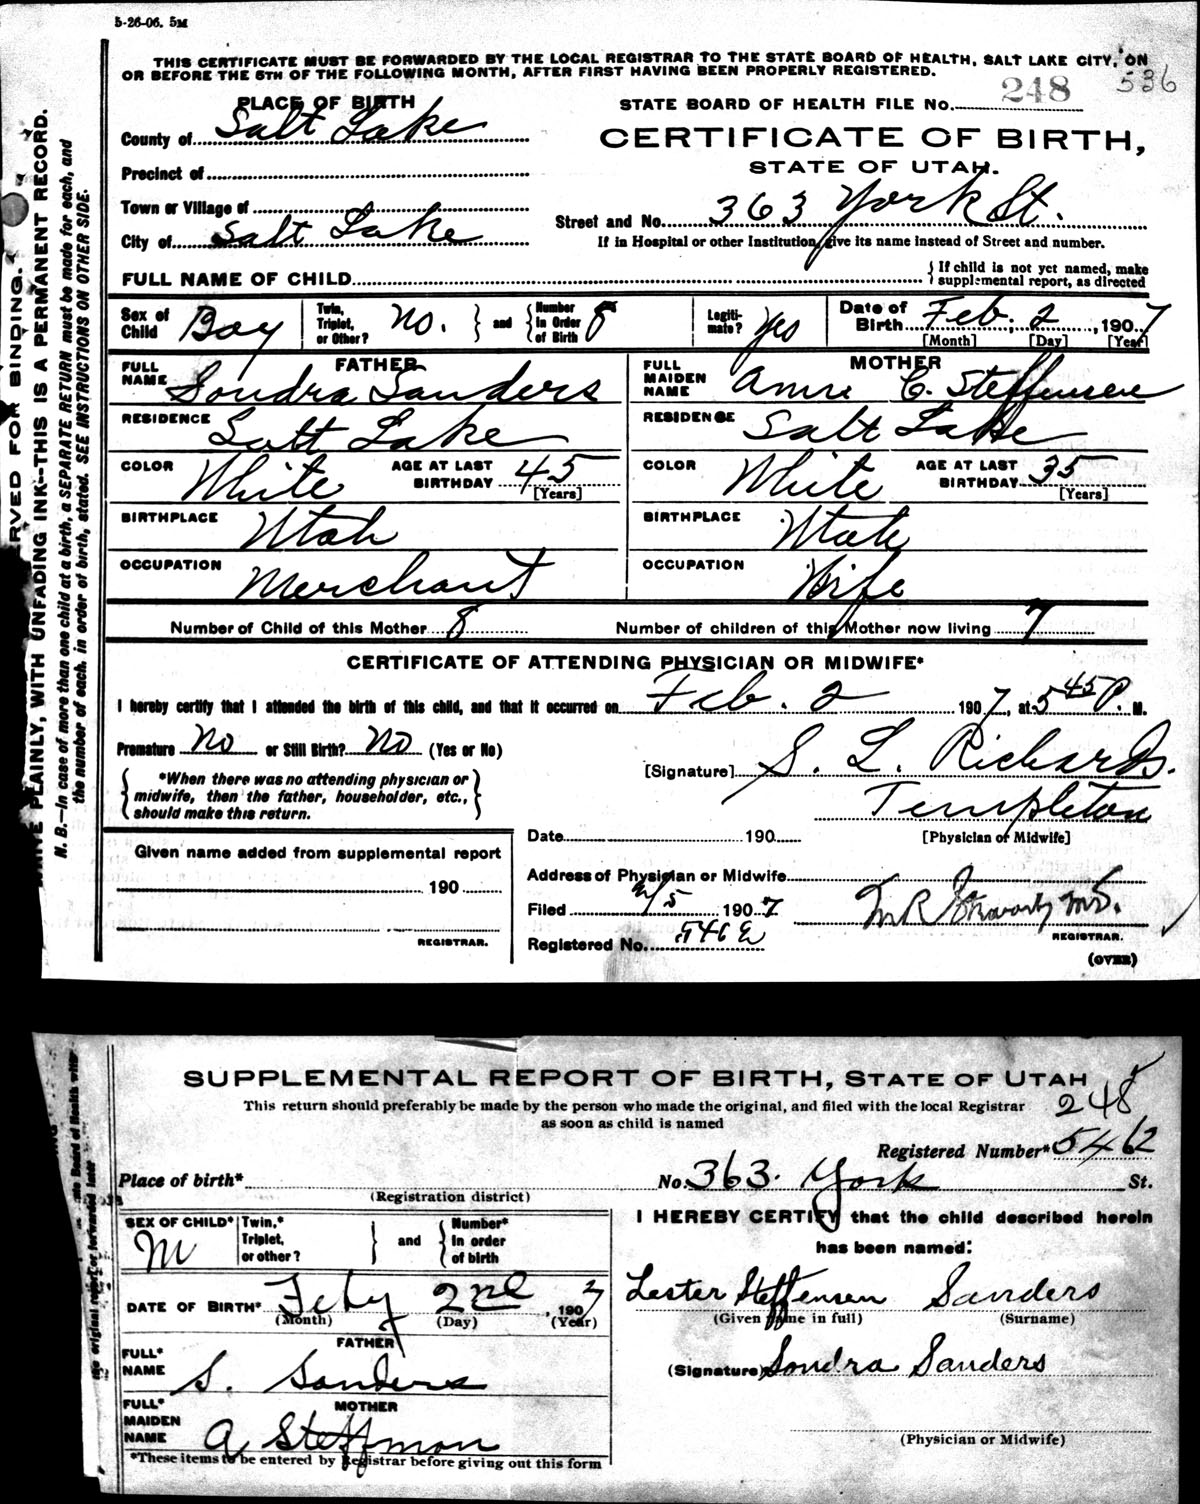 5-26-06. 5M
THIS CERTIFICATE MUST BE FORWARDED BY THE LOCAL REGISTRAR TO THE STATE BOARD OF HEALTH, SALT LAKE CITY, ON
OR BEFORE THE 5TH OF THE FOLLOWING MONTH, AFTER FIRST HAVING BEEN PROPERLY REGISTERED.
536
PLACE OF BIRTH
STATE BOARD OF HEALTH FILE NO. 248
County of Salt Lake
CERTIFICATE OF BIRTH,
STATE OF UTAH.
Precinct of
Town or Village of
Street and No. 363 York St.
City of Salt Lake
If in Hospital or other Institution, give its name instead of Street and number.
FULL NAME OF CHILD
If child is not yet named, make
supplemental report, as directed
Sex of Child Boy
Twin, Triplet, or Other? No. and Number in Order of Birth 8
Legitimate? Yes
Date of Birth Feb. 2, 1907
[Month] [Day] [Year]
FATHER
FULL NAME Sondra Sanders
RESIDENCE Salt Lake
COLOR White AGE AT LAST BIRTHDAY 45 [Years]
BIRTHPLACE Utah
OCCUPATION Merchant
MOTHER
FULL MAIDEN NAME Anne C. Steffensen
RESIDENCE Salt Lake
COLOR White AGE AT LAST BIRTHDAY 35 [Years]
BIRTHPLACE Utah
OCCUPATION Wife
Number of Child of this Mother 8 Number of children of this Mother now living 7
CERTIFICATE OF ATTENDING PHYSICIAN OR MIDWIFE*
I hereby certify that I attended the birth of this child, and that it occurred on Feb. 2 1907, at 5 45 P. M.
Premature No or Still Birth? No (Yes or No)
[Signature] S. L. Richards.
Templeton
[Physician or Midwife]
*When there was no attending physician or
midwife, then the father, householder, etc.,
should make this return.
Given name added from supplemental report
190
REGISTRAR.
Date 190
Address of Physician or Midwife
Filed 2/5 1907
Registered No. 546 2
REGISTRAR.
(OVER)
PLAINLY, WITH UNFADING INK--THIS IS A PERMANENT RECORD.
N. B.—In case of more than one child at a birth, a SEPARATE RETURN must be made for each, and
the number of each, in order of birth, stated. SEE INSTRUCTIONS ON OTHER SIDE.
FOR BINDING.
SUPPLEMENTAL REPORT OF BIRTH, STATE OF UTAH
This return should preferably be made by the person who made the original, and filed with the local Registrar
as soon as child is named
248
Registered Number* 5462
Place of birth*
(Registration district)
No. 363. York St.
SEX OF CHILD* M
Twin,* Triplet, or other? and Number* in order of birth
DATE OF BIRTH* Feby 2nd, 1907
(Month) (Day) (Year)
FATHER
FULL* NAME S. Sanders
MOTHER
FULL* MAIDEN NAME A Steffman
*These items to be entered by Registrar before giving out this form
I HEREBY CERTIFY that the child described herein
has been named:
Lester Steffensen Sanders
(Given name in full) (Surname)
(Signature) Sondra Sanders
(Physician or Midwife)